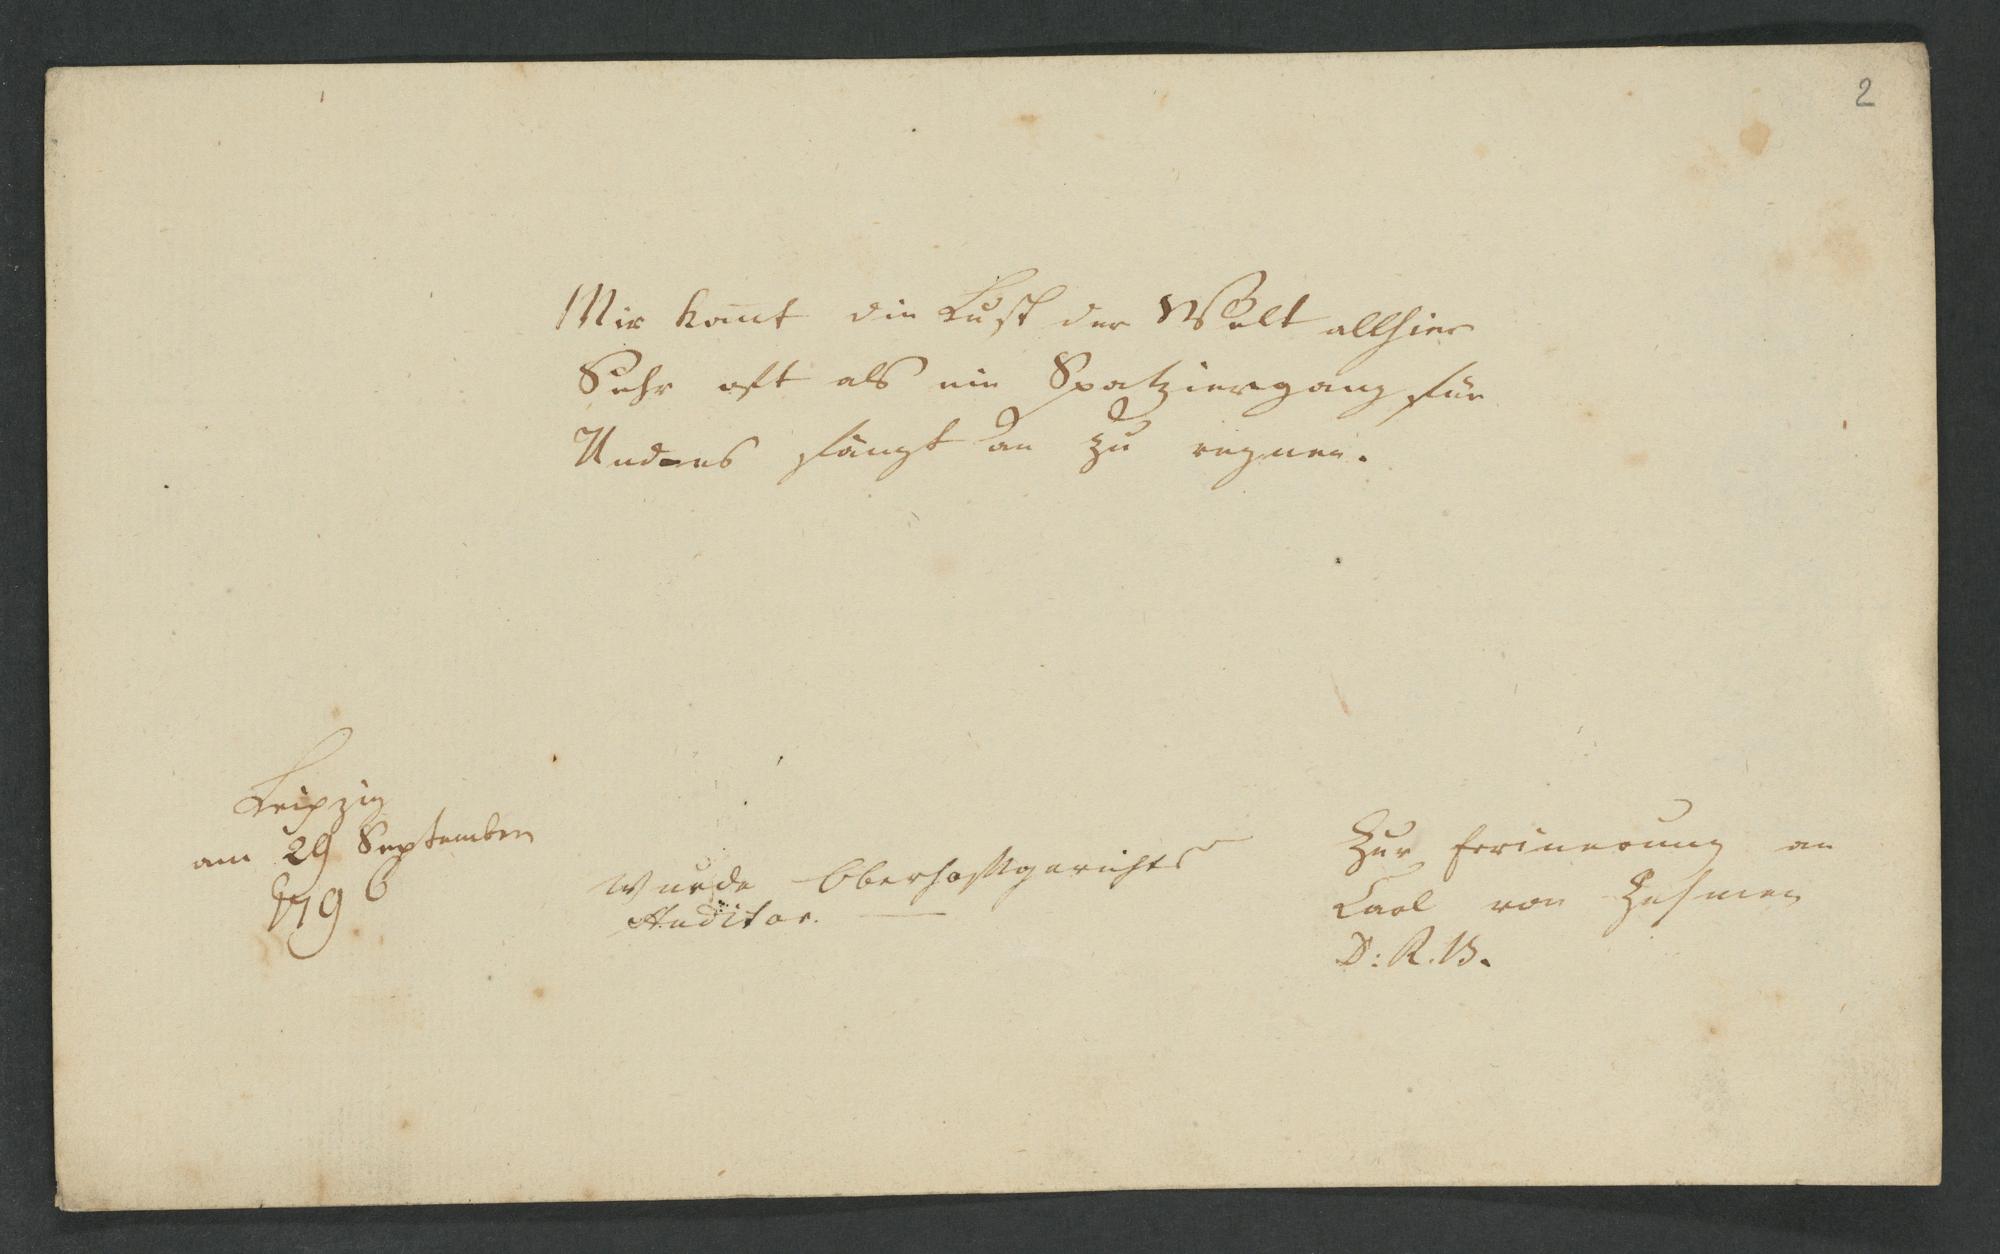 2
Mir kom̅t die Lust der Welt allhier
Sehr oft als ein Spatziergang für
Und es fängt an zu regnen.
Leipzig
am 29 September
1796
Zur Erinerung an
Carl von Zehmen
D: R. B.
wurde Oberhofgerichts
Auditor. —